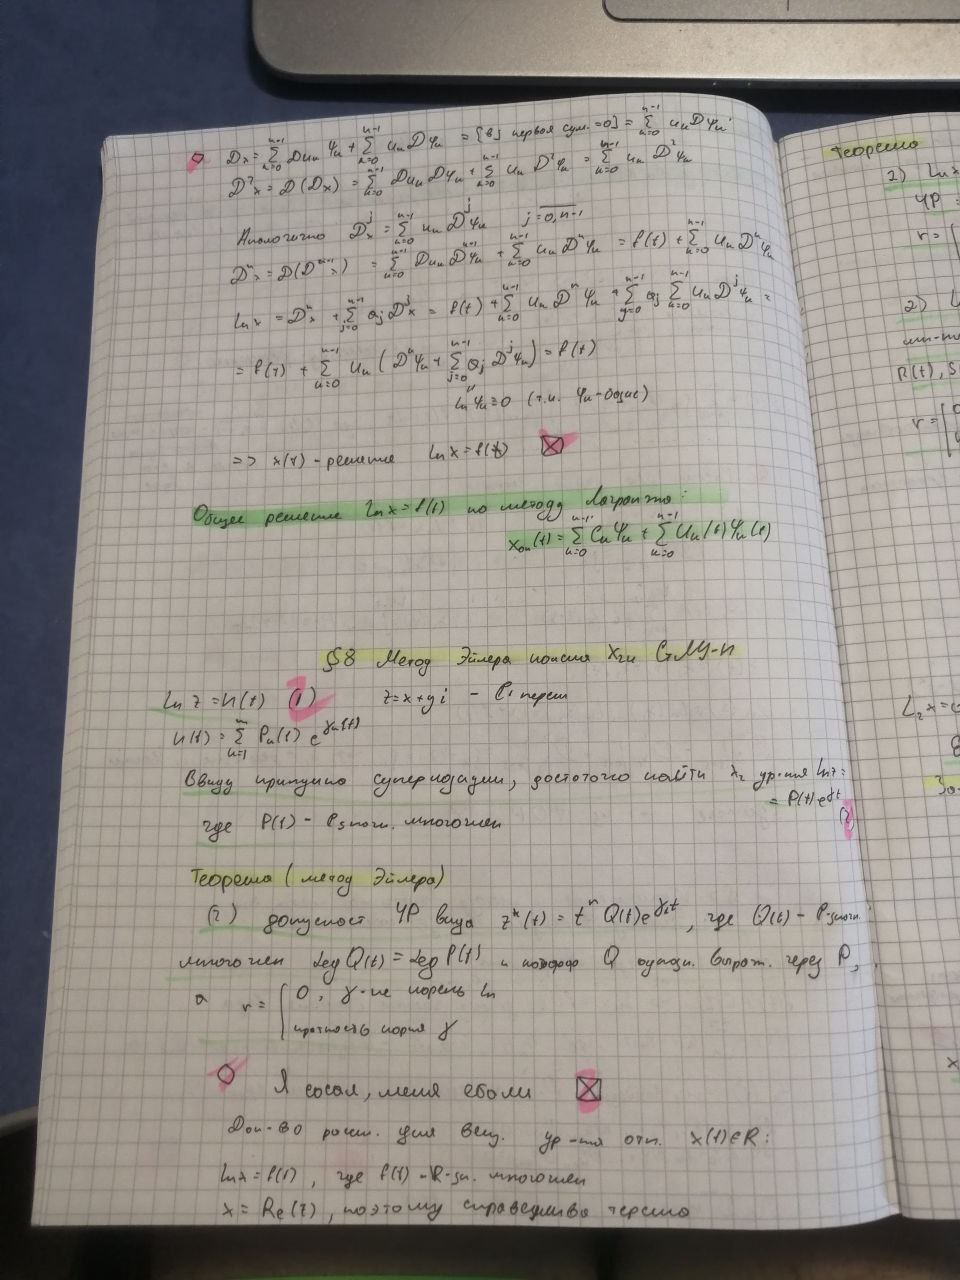 Dx = ∑_{k=0}^{n-1} Du_k φ_k + ∑_{k=0}^{n-1} u_k Dφ_k = [ первая сум. = 0] = ∑_{k=0}^{n-1} u_k Dφ_k
D²x = D(Dx) = ∑_{k=0}^{n-1} Du_k Dφ_k + ∑_{k=0}^{n-1} u_k D²φ_k = ∑_{k=0}^{n-1} u_k D²φ_k
Аналогично D^j x = ∑_{k=0}^{n-1} u_k D^j φ_k j = 0,n-1
D^n x = D(D^{n-1} x) = ∑_{k=0}^{n-1} Du_k D^{n-1}φ_k + ∑_{k=0}^{n-1} u_k D^n φ_k = f(t) + ∑_{k=0}^{n-1} u_k D^n φ_k
L_n x = D^n x + ∑_{j=0}^{n-1} a_j D^j x = f(t) + ∑_{k=0}^{n-1} u_k D^n φ_k + ∑_{j=0}^{n-1} a_j ∑_{k=0}^{n-1} u_k D^j φ_k =
= f(t) + ∑_{k=0}^{n-1} u_k (D^n φ_k + ∑_{j=0}^{n-1} a_j D^j φ_k) = f(t)
L_n φ_k ≡ 0 (т.к. φ_k - базис)
=> x(t) - решение L_n x = f(t) ☒
Общее решение L_n x = f(t) по методу Лагранжа:
x_он(t) = ∑_{k=0}^{n-1} C_k φ_k + ∑_{k=0}^{n-1} u_k(t) φ_k(t)
§8 Метод Эйлера поиска СтЛУ-n
L_n z = h(t) (1) z = x + yi -
h(t) = ∑_{k=1}^{m} P_k(t) e^{γ_k t}
Ввиду принципа суперпозиции, достаточно найти ур-ния L_n z =
= P(t) e^{γt} (2)
где P(t) - значн. многочлен
Теорема (метод Эйлера)
(2) допускает ЧР вида z*(t) = t^r Q(t) e^{γt}, где Q(t) - значн.
многочлен deg Q(t) = deg P(t) и коэфф Q однозн. выраж. через P,
а r = { 0, γ - не корень L_n
кратность корня γ
Я сосал, меня ебали ☒
Док-во расш. для вещ. ур-ния отн. x(t)∈R:
L_n x = f(t), где f(t) - R-зн. многочлен
x = Re(z), поэтому справедлива теорема
Теорема
2)
ЧР
r =
2)
R(t), S
r =
L₂x =
x